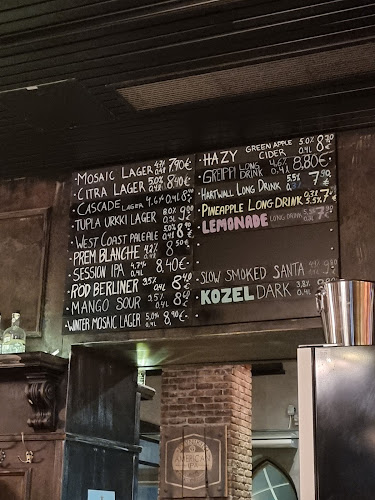 MOSAIC LAGER 4% 0.4L 7.90€
CITRA LAGER 5.0% 0.4L 8.40€
CASCADE LAGER 4.6% 0.4L 8.40
TUPLA URKKI LAGER 8.0% 0.4L 9.90
WEST COAST PALE ALE 5.0% 0.4L 8.40
PREM BLANCHE 8.50
SESSION IPA 4.7% 0.4L 8.40€
ROD BERLINER 3.5% 0.4L 8.40
MANGO SOUR 3.5% 0.4L 8.40
WINTER MOSAIC LAGER 5.0% 0.4L 8.40€
HAZY GREEN APPLE CIDER 5.0% 0.4L 8.70
GREIPPI LONG DRINK 4.6% 0.4L 8.80€
HARTWALL LONG DRINK 5.5% 7.90
PINEAPPLE LONG DRINK 7.90
LEMONADE LONG DRINK 7.90
SLOW SMOKED SANTA
KOZEL DARK 3.8% 0.4L